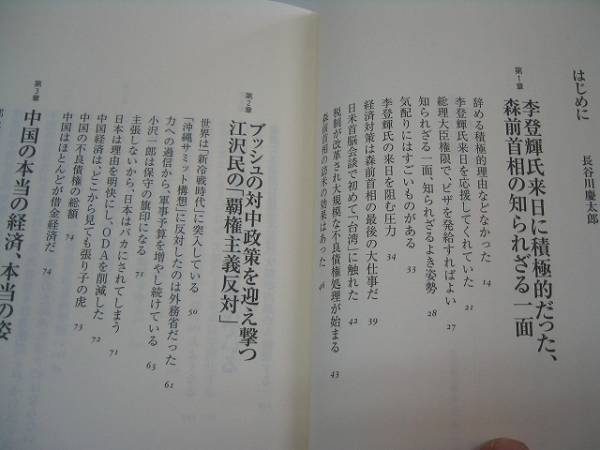 はじめに　長谷川慶太郎
第1章
李登輝氏来日に積極的だった、
森前首相の知られざる一面
辞める積極的理由などなかった 14
李登輝氏の来日を応援してくれていた 21
総理大臣権限で、ビザを発給すればよい 27
知られざる一面、知られざるよき姿勢 28
気配りにはすごいものがある 33
李登輝氏の来日を阻む圧力 34
経済対策は森前首相の最後の大仕事だ 39
日米首脳会談で初めて「台湾」に触れた 42
税制が改革され大規模な不良債権処理が始まる 43
森前首相の訪米の効果はあった 46
第2章
ブッシュの対中政策を迎え撃つ
江沢民の「覇権主義反対」
世界は「新冷戦時代」に突入している 50
「沖縄サミット構想」に反対したのは外務省だった 61
力への過信から、軍事予算を増やし続けている 63
小沢一郎は保守の旗印になる
主張しないから、日本はバカにされてしまう 71
日本は理由を明快にし、ODAを削減した 72
中国経済は、どこから見ても張り子の虎 73
中国の不良債権の総額 74
中国はほとんどが借金経済だ 74
第3章
中国の本当の経済、本当の姿